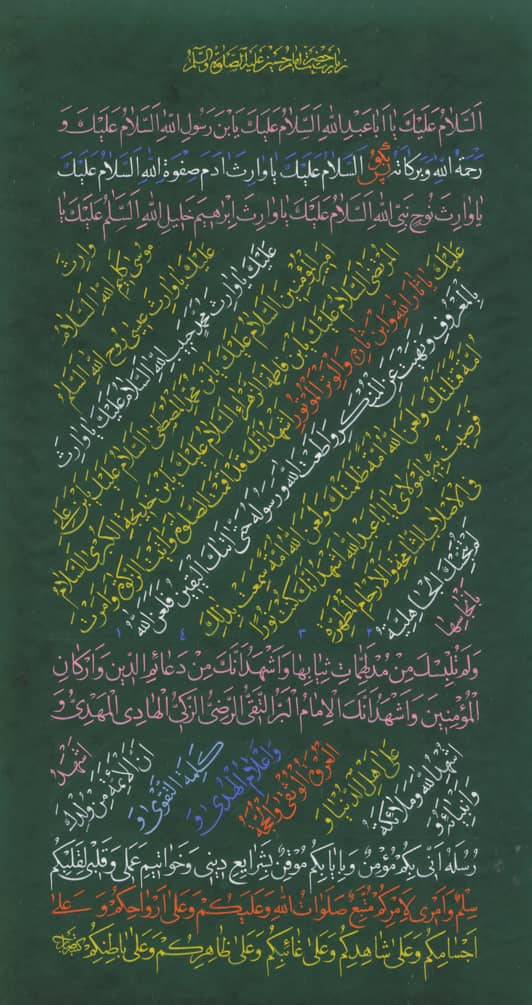 زیارت حضرت امام حسین علیه الصلوة والسلم
اَلسَّلامُ عَلَیْكَ یا اَبا عَبْدِ اللهِ اَلسَّلامُ عَلَیْكَ یَابْنَ رَسُولِ اللهِ اَلسَّلامُ عَلَیْكَ وَ
رَحْمَةُ اللهِ وَبَرَکاتُهُ اَلسَّلامُ عَلَیْكَ یا وارِثَ ادَمَ صِفْوَةِ اللهِ اَلسَّلامُ عَلَیْكَ
یا وارِثَ نُوحٍ نَبِیِّ اللهِ اَلسَّلامُ عَلَیْكَ یا وارِثَ اِبْرهیمَ خَلیلِ اللهِ اَلسَّلمُ عَلَیْكَ یا
وارِثَ
مُوسی کَلیمِ اللهِ اَلسَّلامُ
عَلَیْكَ یا وارِثَ عیسی رُوحِ اللهِ اَلسَّلمُ
عَلَیْكَ یا وارِثَ مُحَمَّدٍ حَبیبِ اللهِ اَلسَّلامُ عَلَیْكَ یا وارِثَ
اَمیرِ الْمُؤْمِنینَ اَلسَّلامُ عَلَیْكَ یَابْنَ مُحَمَّدٍ الْمُصْطَفی اَلسَّلامُ عَلَیْكَ یَابْنَ عَلِیٍّ
الْمُرْتَضی اَلسَّلامُ عَلَیْكَ یَابْنَ فاطِمَةَ الزَّهْراءِ اَلسَّلامُ عَلَیْكَ یَابْنَ خَدیجَةَ الْکُبْری اَلسَّلامُ
عَلَیْكَ یا ثارَ اللهِ وَابْنَ ثارِهِ وَالْوِتْرَ الْمَوْتُورَ اَشْهَدُ اَنَّكَ قَدْ اَقَمْتَ الصَّلوةَ وَاتَیْتَ الزَّکوةَ وَاَمَرْتَ
بِالْمَعْرُوفِ وَنَهَیْتَ عَنِ الْمُنْکَرِ وَاَطَعْتَ اللهَ وَرَسُولَهُ حَتّی اَتیكَ الْیَقینُ فَلَعَنَ اللهُ
اُمَّةً قَتَلَتْكَ وَلَعَنَ اللهُ اُمَّةً ظَلَمَتْكَ وَلَعَنَ اللهُ اُمَّةً سَمِعَتْ بِذلِكَ
فَرَضِیَتْ بِهِ یا مَوْلایَ یا اَبا عَبْدِ اللهِ اَشْهَدُ اَنَّكَ کُنْتَ نُورًا
فِی الْاَصْلابِ الشّامِخَةِ وَالْاَرْحامِ الْمُطَهَّرَةِ
لَمْ تُنَجِّسْكَ الْجاهِلِیَّةُ
بِاَنْجاسِها
۱ ۴ ۳ ۲
وَلَمْ تُلْبِسْكَ مِنْ مُدْلَهِمّاتِ ثِیابِها وَاَشْهَدُ اَنَّكَ مِنْ دَعائِمِ الدّینِ وَاَرْکانِ
الْمُؤْمِنینَ وَاَشْهَدُ اَنَّكَ الْاِمامُ الْبَرُّ التَّقِیُّ الرَّضِیُّ الزَّکِیُّ الْهادِی الْمَهْدِیُّ وَ
اَشْهَدُ
اَنَّ الْاَئِمَّةَ مِنْ وُلْدِكَ
کَلِمَةُ التَّقْوی وَ
وَاَعْلامُ الْهُدی وَ
الْعُرْوَةُ الْوُثْقی وَالْحُجَّةُ
عَلی اَهْلِ الدُّنْیا وَ
اُشْهِدُ اللهَ وَمَلائِکَتَهُ
وَاَنْبِیائَهُ وَ
رُسُلَهُ اَنّی بِکُمْ مُؤْمِنٌ وَبِاِیابِکُمْ مُوقِنٌ بِشَرایِعِ دینی وَخَواتیمِ عَمَلی وَقَلْبی لِقَلْبِکُمْ
سِلْمٌ وَاَمْری لِاَمْرِکُمْ مُتَّبِعٌ صَلَواتُ اللهِ وَعَلَیْکُمْ وَعَلی اَرْواحِکُمْ وَعَلی
اَجْسامِکُمْ وَعَلی شاهِدِکُمْ وَعَلی غائِبِکُمْ وَعَلی ظاهِرِکُمْ وَعَلی باطِنِکُمْ